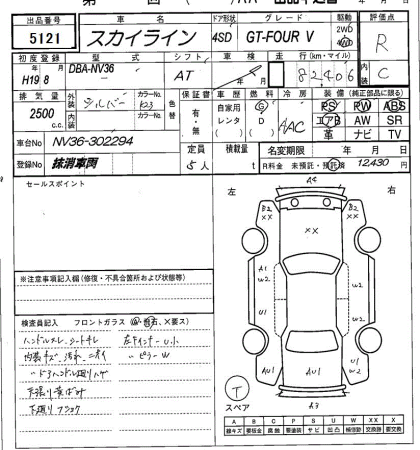 出品番号 車名 ドア形状 グレード 駆動 評価点
5121 スカイライン 4SD GT-FOUR V 2WD 4WD R
初度登録 型式 シフト 車検 走行(km・マイル) 内装
H19 年 8 月 DBA-NV36 AT 年 月 82406 C
排気量 外装 シルバー カラーNo. K23 色替 保証書 車歴 燃料 冷房 装備(純正部品に限る)
2500 c.c. 内装 カラーNo. 有・無 自家用 レンタ G D AAC PS PW ABS
エアB AW SR
革 ナビ TV
車台No NV36-302294 定員 積載量 名変期限 年 月 日
登録No 抹消車両 5人 t R料金 未預託・預託済 12,430 円
セールスポイント
左 A4 右
B2 XX XX B2 XX
※注意事項記入欄(修復・不具合箇所および状態等)
A1 W2 W2
U1 U1 W2
検査員記入 フロントガラス
ハンドルスレ、シートヤレ
内装キズ、汚れ
下廻りサビ
AU1 AU1 W2
T
スペア A3
A B C P S U W XX X
線キズ 要板金 腐蝕 要塗装 サビ 凹凸 補修跡 交換跡 要交換